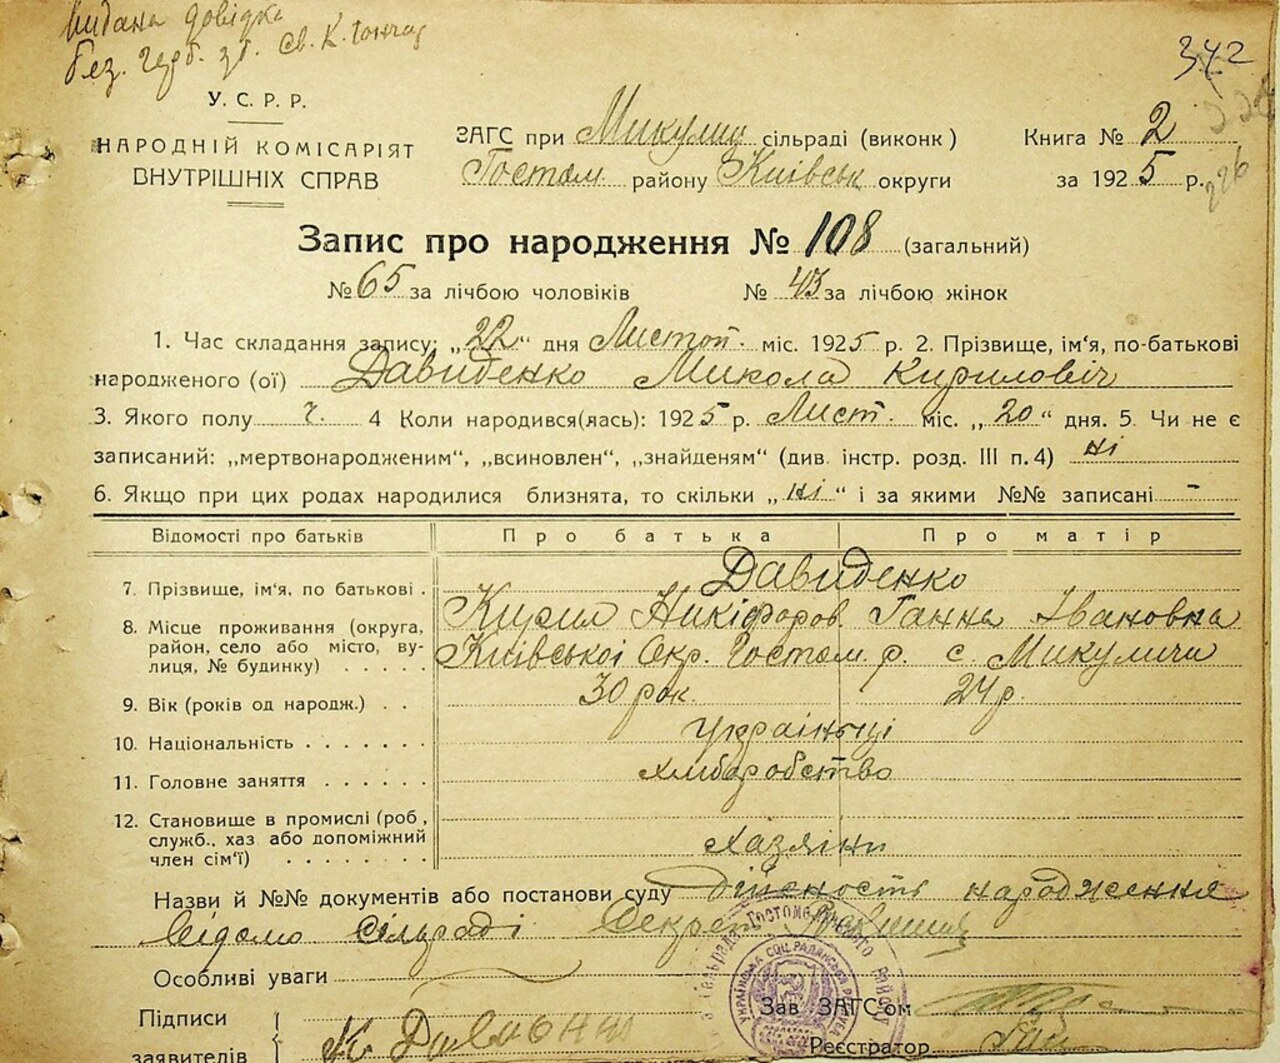 видана довідка
без. герб. зб. Св. К. Гончар
342
У. С. Р. Р.
НАРОДНІЙ КОМІСАРІЯТ
ВНУТРІШНІХ СПРАВ
ЗАГС при Микулиц сільраді (виконк)
Гостом. району Київськ округи
Книга № 2
за 1925 р.
226
Запис про народження № 108 (загальний)
№ 65 за лічбою чоловіків № 43 за лічбою жінок
1. Час складання запису: „22“ дня Листоп. міс. 1925 р. 2. Прізвище, ім‘я, по-батькові
народженого (ої) Давиденко Микола Кирилович
3. Якого полу ч. 4 Коли народився(лась): 1925 р. Лист. міс. „20“ дня. 5. Чи не є
записаний: „мертвонародженим“, „всиновлен“, „знайденям“ (див. інстр. розд. III п. 4) ні
6. Якщо при цих родах народилися близнята, то скільки „ні“ і за якими №№ записані -
Відомості про батьків Про батька Про матір
7. Прізвище, ім‘я, по батькові . Давиденко
Кирил Никіфоров. Ганна Івановна
8. Місце проживання (округа,
район, село або місто, ву-
лиця, № будинку) . . . . . Київської Окр. Гостом. р. с. Микуличи
9. Вік (років од народж.) . . 30 рок. 24 р.
10. Національність . . . . . . . Українці
11. Головне заняття . . . . . . хліборобство
12. Становище в промислі (роб.,
служб., хаз або допоміжний
член сім‘ї) . . . . . . . . Хазяіни
Назви й №№ документів або постанови суду Дійсность народження
відомо сільраді Секрет.
Особливі уваги
УКРАЇНСЬКА СОЦ. РАДЯНСЬКА
Зав ЗАГС‘ом
Підписи
заявителів К Давиденко
Реєстратор